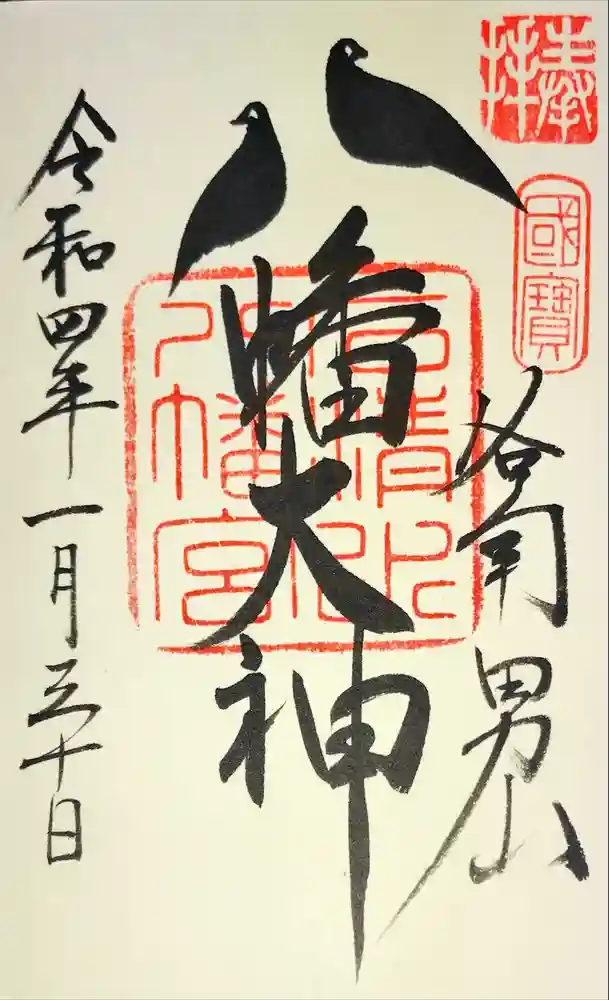 奉拝
國寶
洛南 男山
八幡大神
石清水
八幡宮
令和四年一月三十日